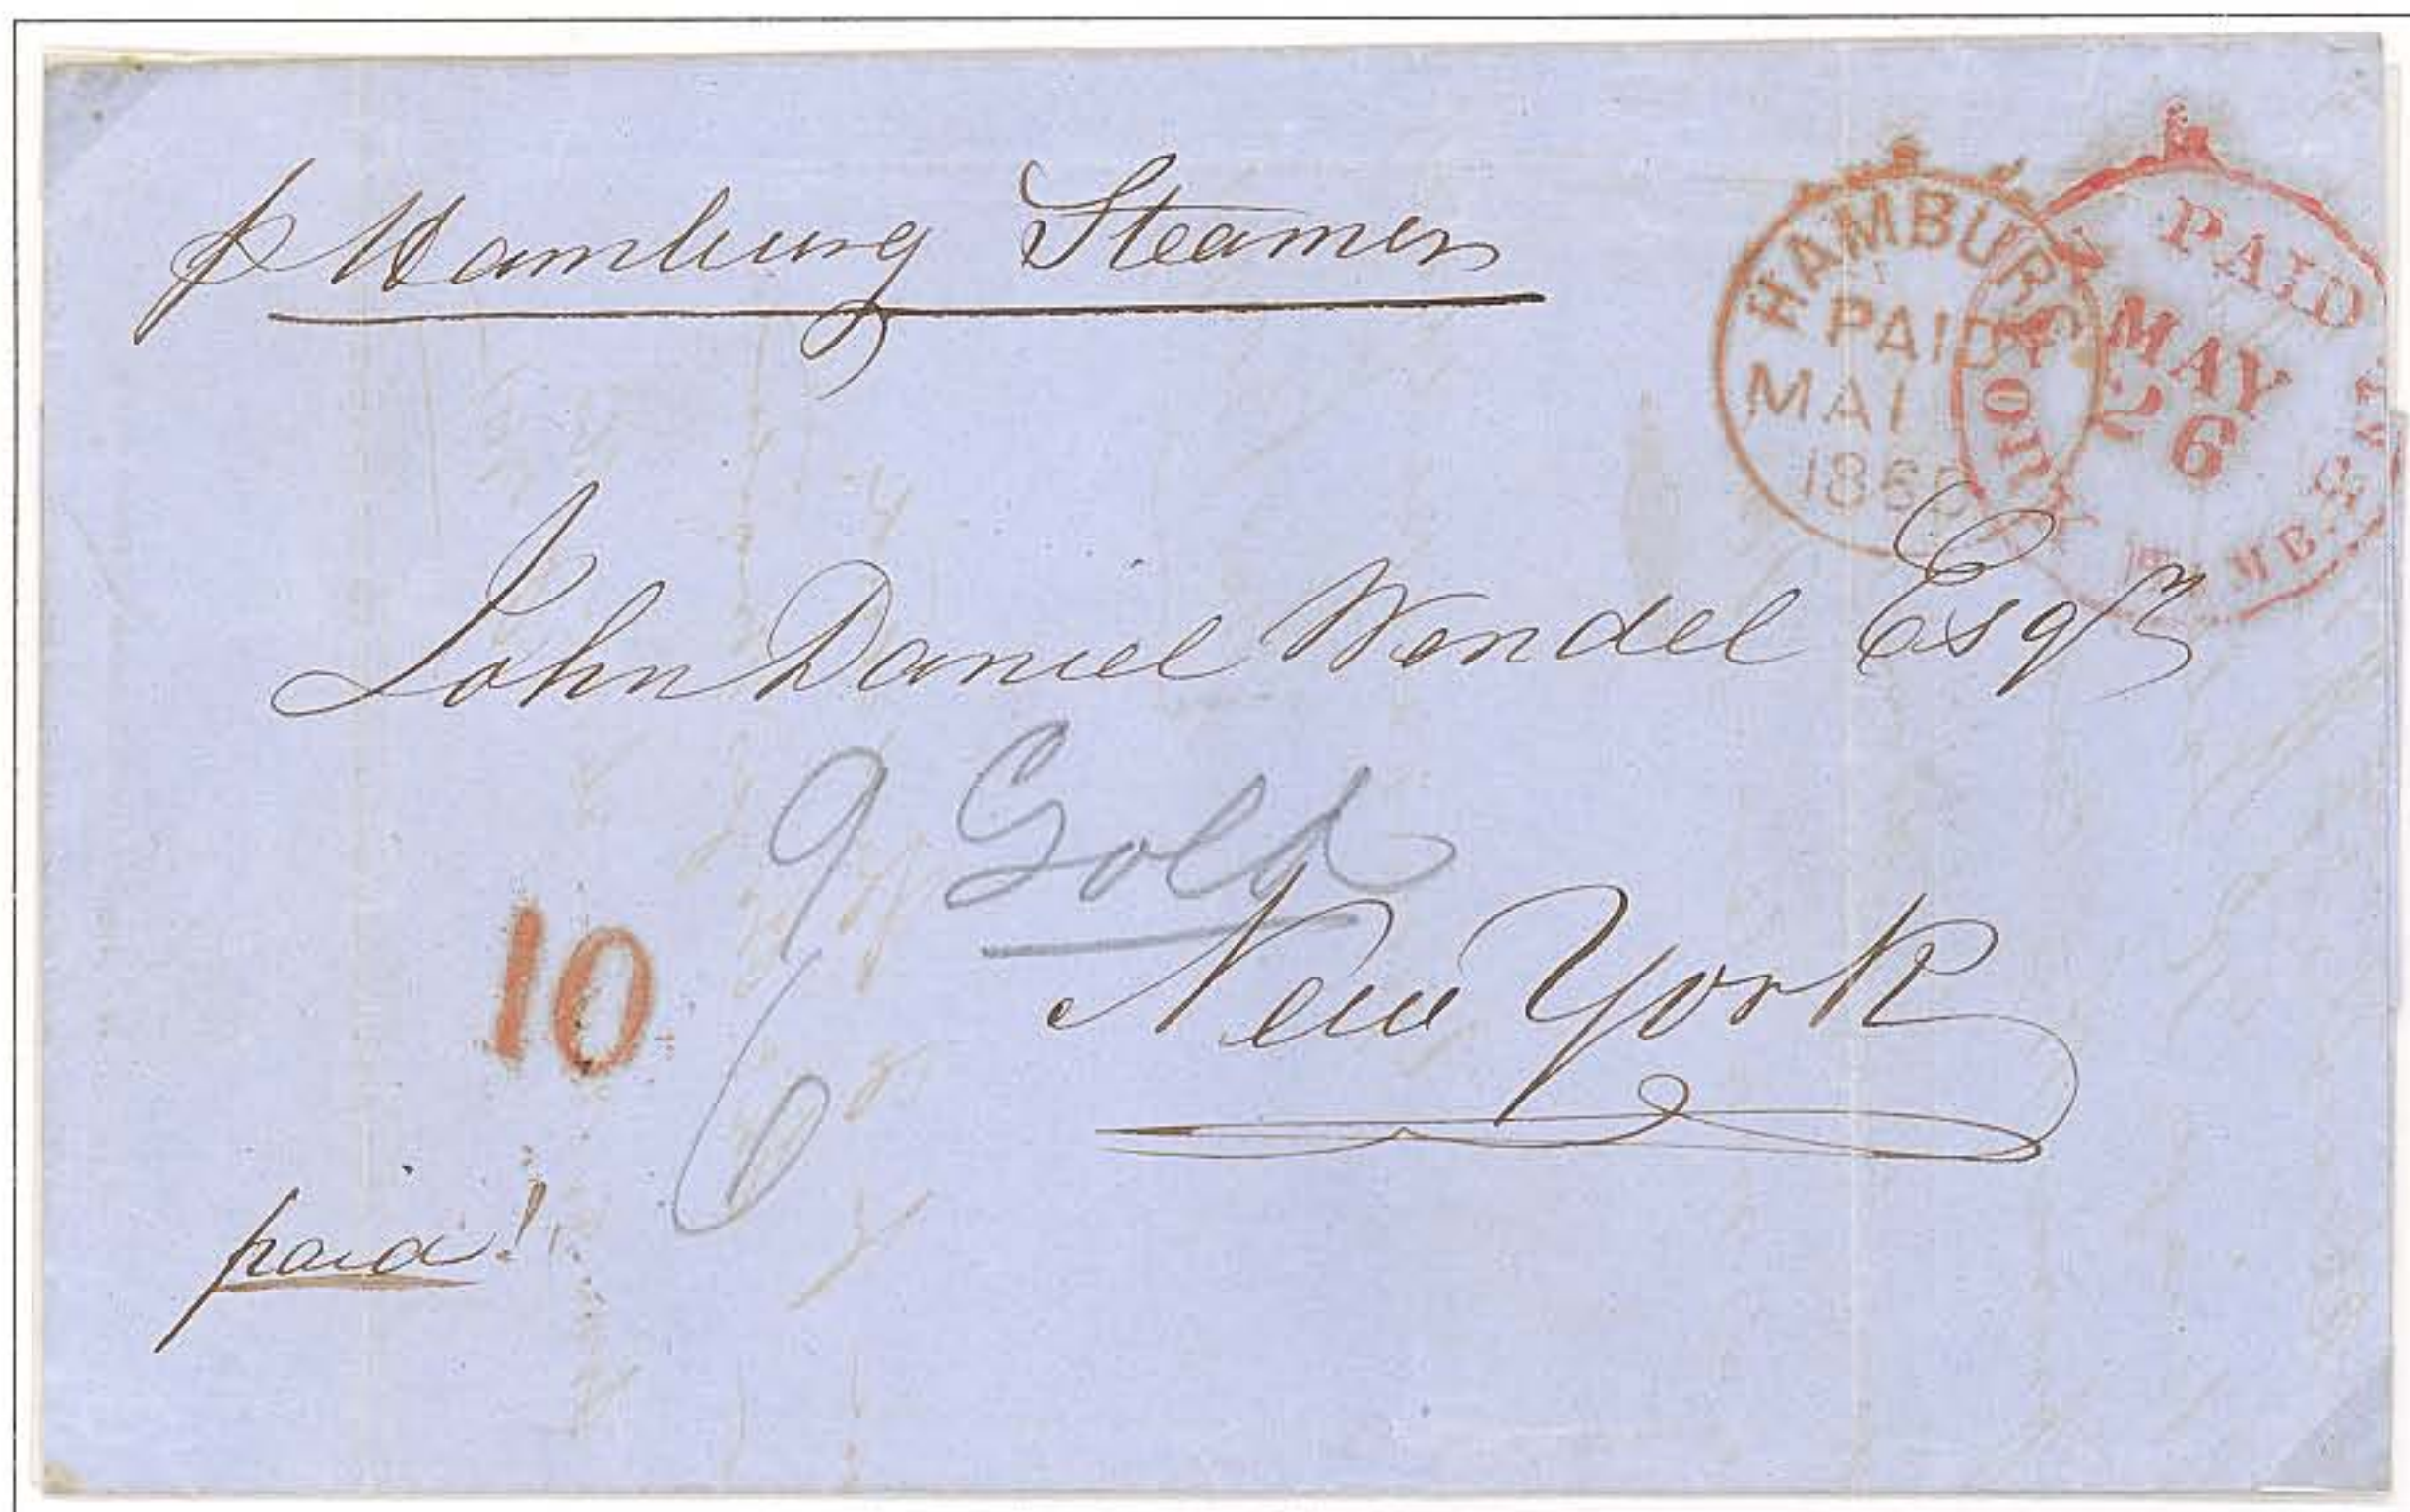 p Hamburg Steamer
HAMBURG
PAID
MAI
N YORK PAID
MAY
26
John Daniel Wendel Esqr
9 Gold
10
New York
paid!